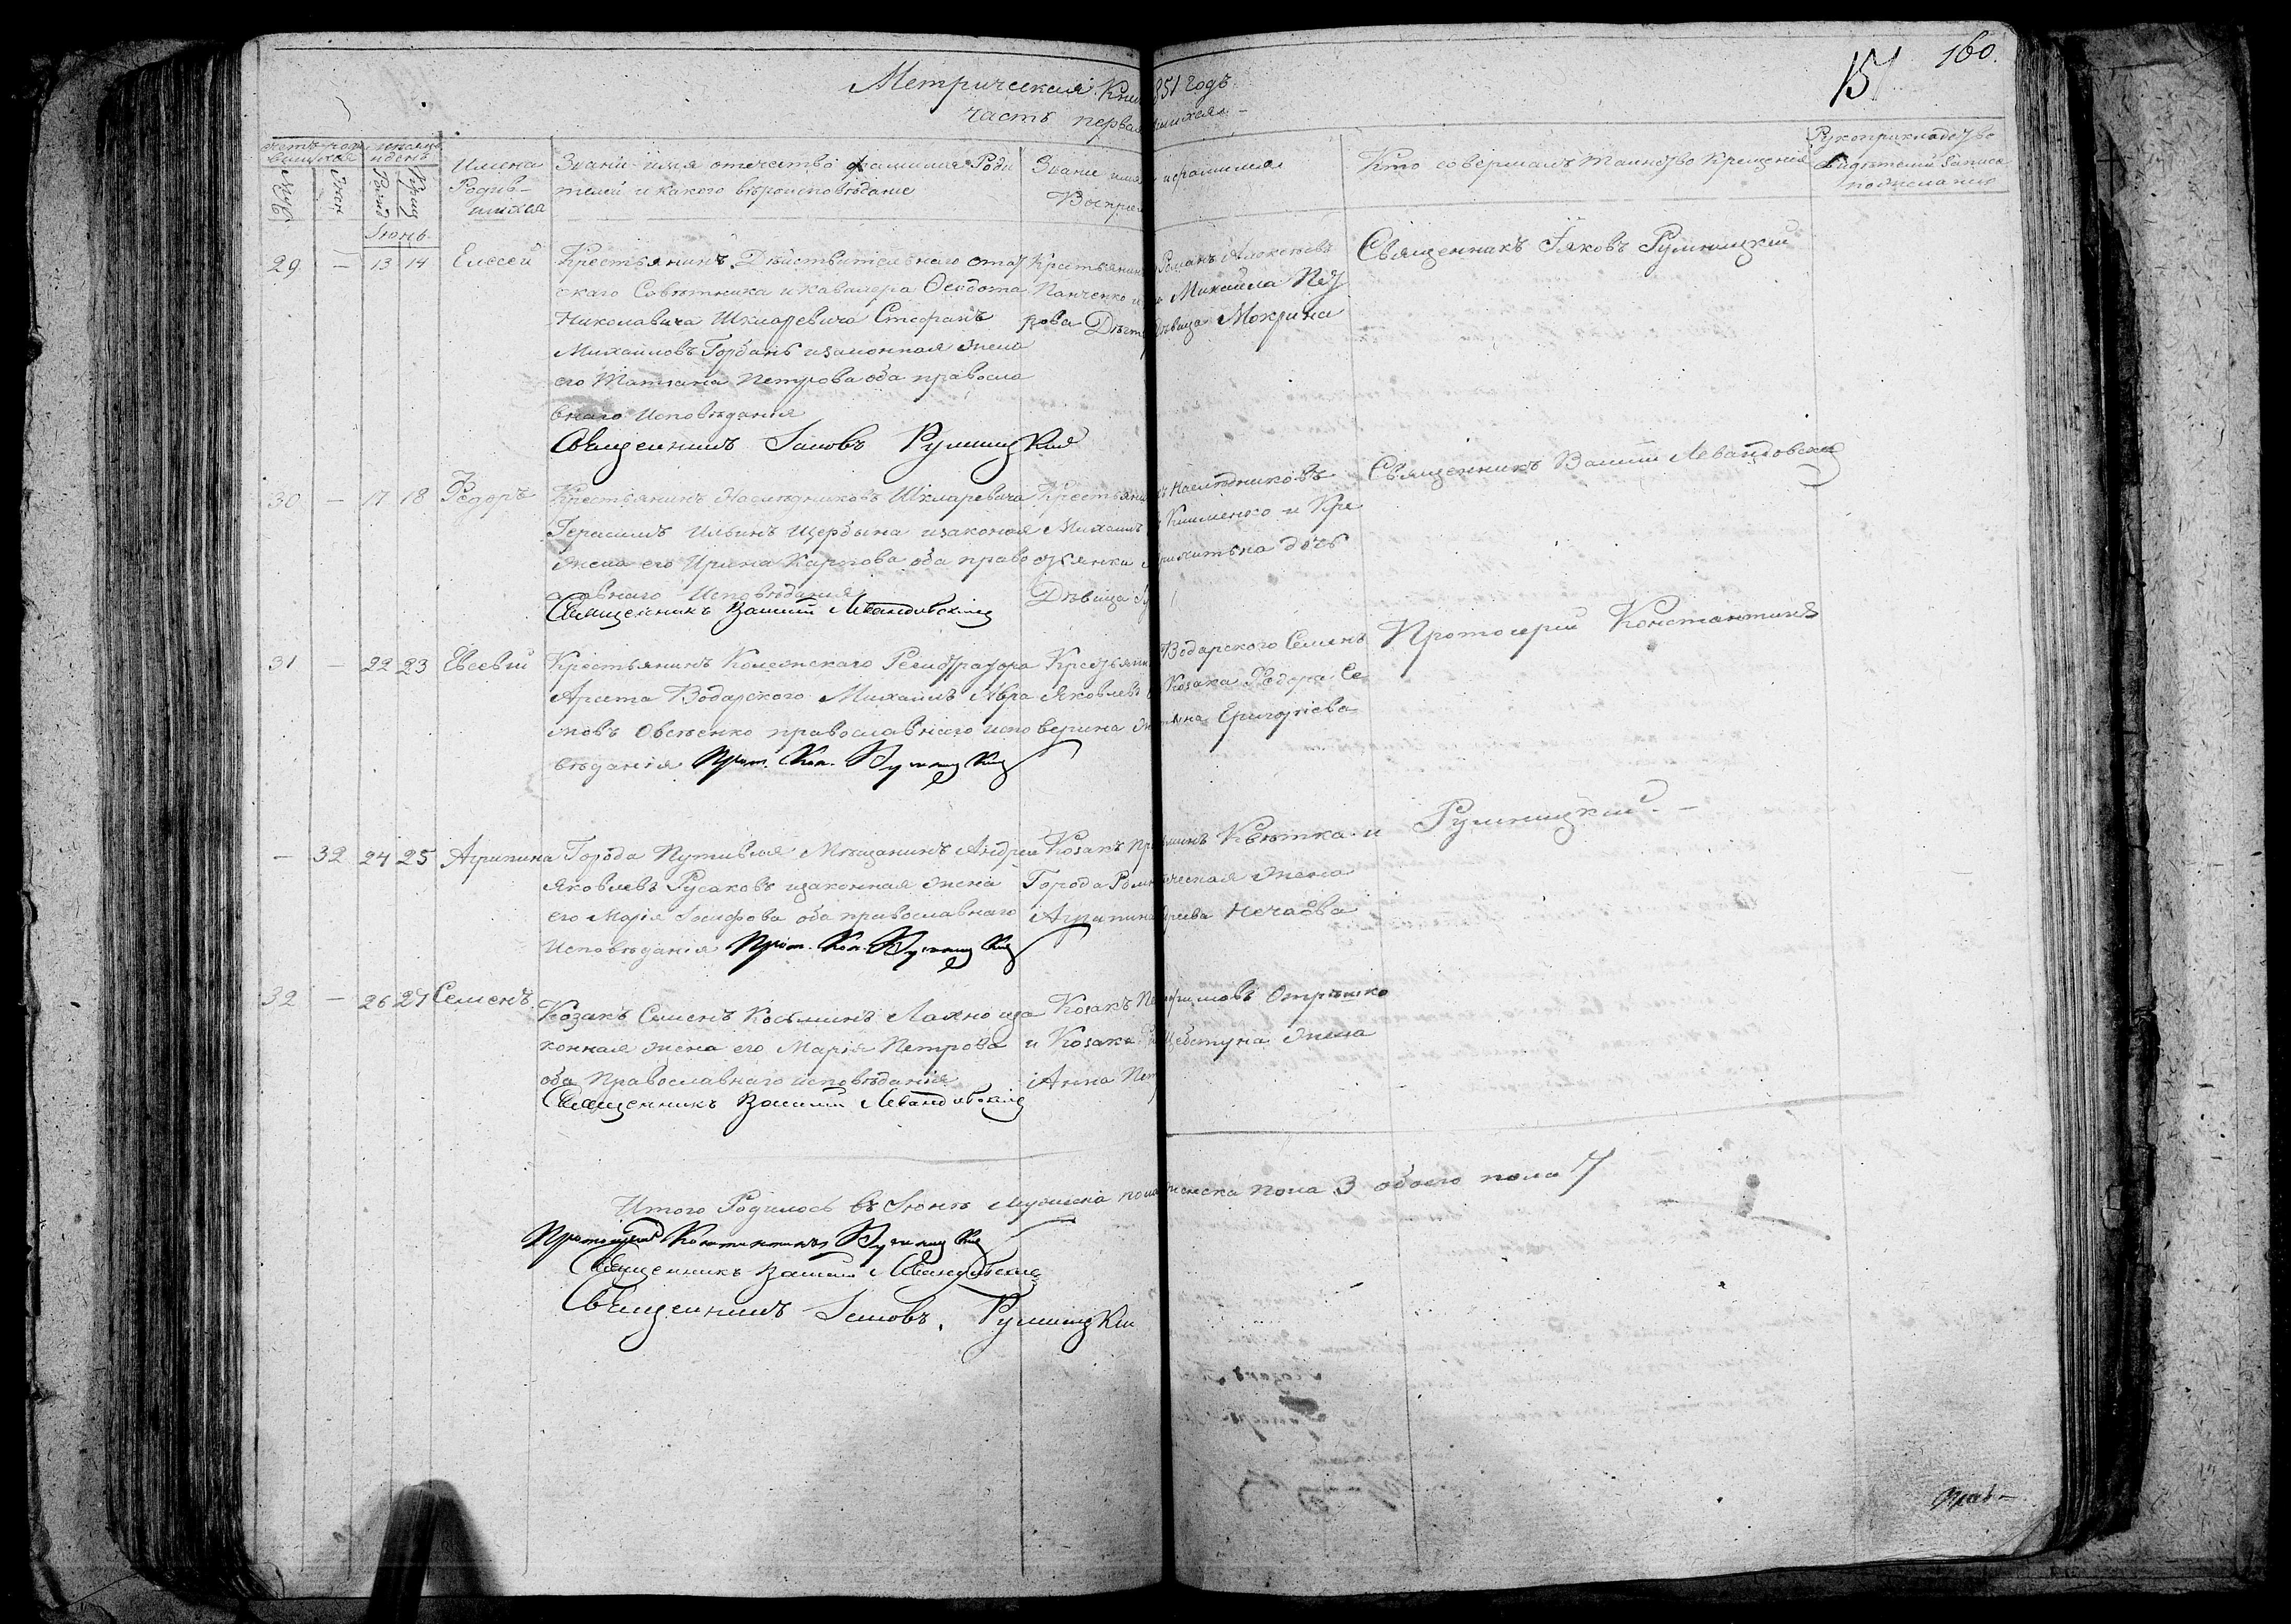 160.
151
Метрическая Кни 851 Годъ
Часть первая
месяцъ и день
Имена Родив-шихся
Звание имя отечество фамилия Роди
телей и какого вѣроисповѣдания
Звание имя и фамилия
Восприем
Кто совершалъ Таинство Крещения
Рукоприкладство
Свидѣтелей Записи
по желанию
Муж
Жен
Рожд
Крещ
Іюнь
29 — 13 14 Елесей
Крестьянинъ Дѣйствительнаго стат
скаго Совѣтника и кавалера Феодота
Николавича Шкларевича Стефанъ
Михаиловъ Горбань изаконная жена
его Татиана Петрова оба правосла
внаго Исповѣдания
Священникъ Іаковъ Румницкий
Крестьянин Романъ Алексѣевъ
Панченко и Михаила Пет
рова Дѣвица Мокрина
Священникъ Іяковъ Румницкий
30 — 17 18 Федоръ
Крестьянинъ Наслѣдниковъ Шкларевича
Герасимъ Ильинъ Щербына изаконая
жена его Ирина Карпова оба право
славнаго Исповѣдания
Священникъ Василий Левандовский
Крестьянинъ Наслѣдниковъ
Михаилъ Клименко и Кре
стьянки дочь
Дѣвица
Священникъ Василий Левандовский
31 — 22 23 Евсевий
Крестьянинъ Колежскаго Регистратора
Арета Водарского Михаилъ Авра
мовъ Овсѣенко православнаго испо
вѣдания Прот. Кон. Румницкий
Крестьянин Водарского Семенъ
Яковлевъ Козака Федора Се
верина жена Григориева
Протоиерей Константинъ
Румницкий. —
— 32 24 25 Агрипина
Города Путивля Мѣщанинъ Андрей
Яковлевъ Русаковъ изаконная жена
его Мария Іосифова оба православнаго
Исповѣдания Прот. Кон. Румницкий
Козакъ Квѣтка и
Города Ромн жена
Агрипина Нечаева
32 — 26 27 Семенъ
Козакъ Семенъ Косьминъ Лахно иза
конная жена его Мария Петрова
оба Православнаго исповѣдания
Священникъ Василий Левандовский
Козакъ Отрѣшко
и Козака жена
Анна Пет
Итого Родилось въ Іюнѣ Мужеска пола женска пола 3 обоего пола 7
Протоиерей Константинъ Румницкий
Священникъ Василий Левандовский
Священникъ Іаковъ Румницкий